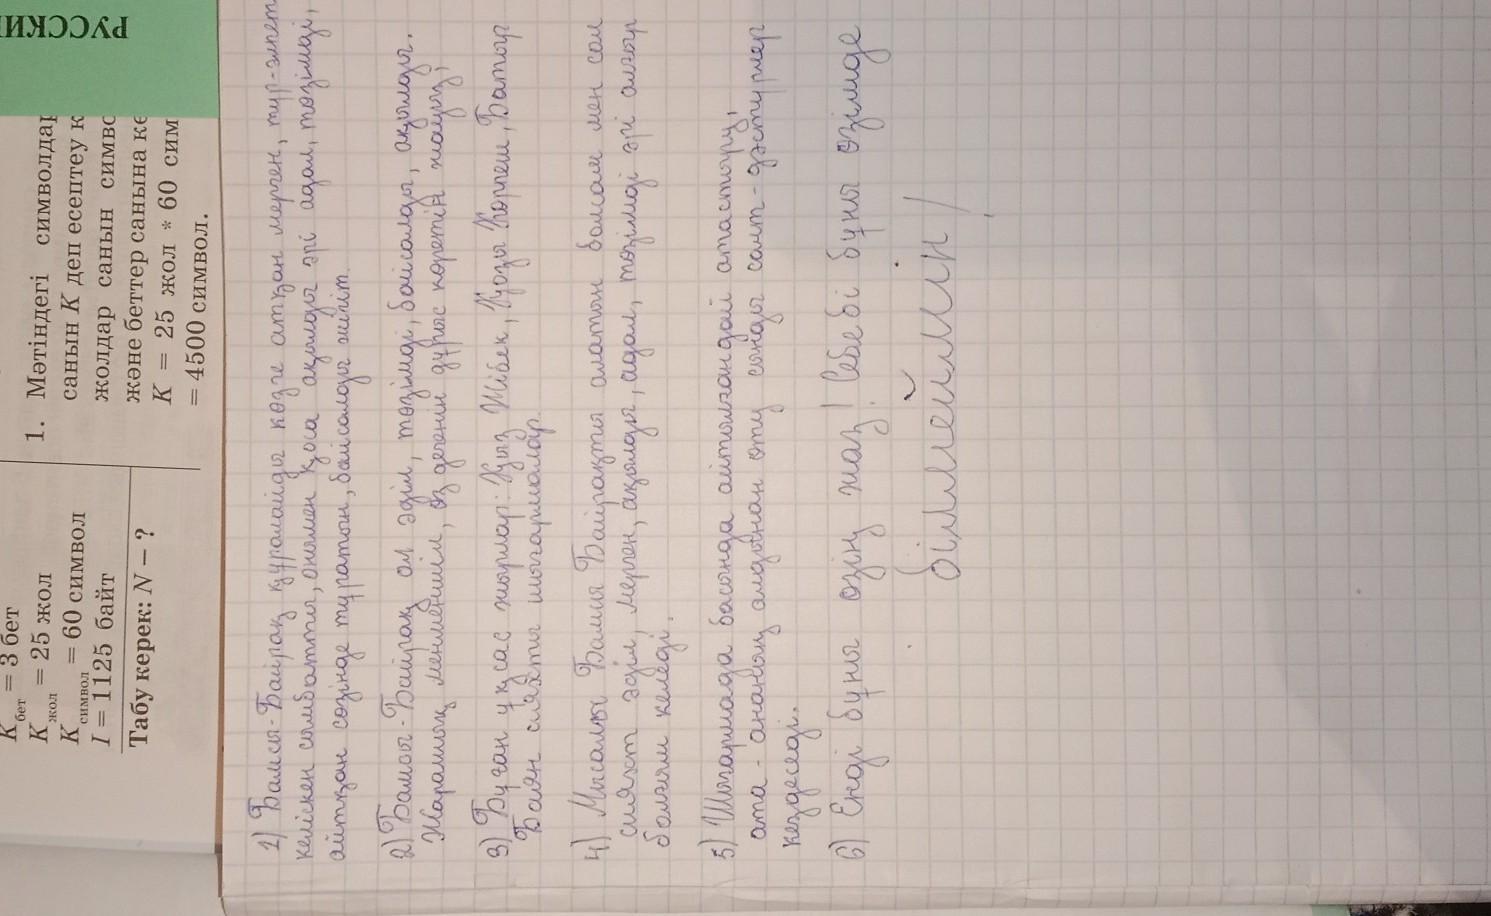 РУССКИ
K бет = 3 бет
K жол = 25 жол
K символ = 60 символ
I = 1125 байт
Табу керек: N – ?
1. Мәтіндегі символдар
санын K деп есептеу к
жолдар санын символ
және беттер санына кө
K = 25 жол * 60 сим
= 4500 символ.
1) Бамсы-Байрақ құралайды көзге атқан мерген, түр-әлпет
келіскен сымбатты, онымен қоса ақылды әрі адал, төзімді,
айтқан сөзінде тұратын, байсалды жігіт.
2) Бамсы-Байрақ ол әділ, төзімді, байсалды, ақылды.
Жарамық менменшіл, өз дегенін дұрыс көретін жауыз,
3) Бұған ұқсас жырлар: Қыз Жібек, Қозы Көрпеш, Батыр
Баян сияқты шығармалар.
4) Мысалы Бамсы Байрақты алатын болсам мен сол
сияқт әділ, мерген, ақылды, адал, төзімді әрі алғыр
болғым келеді.
5) Шығармада басында айтылғандай атастыру,
ата-ананың алдынан өту сынды салт-дәстүрлер
кездеседі.
6) Енді бұны өзің жаз! Себебі бұны өзімде
білмеймін!